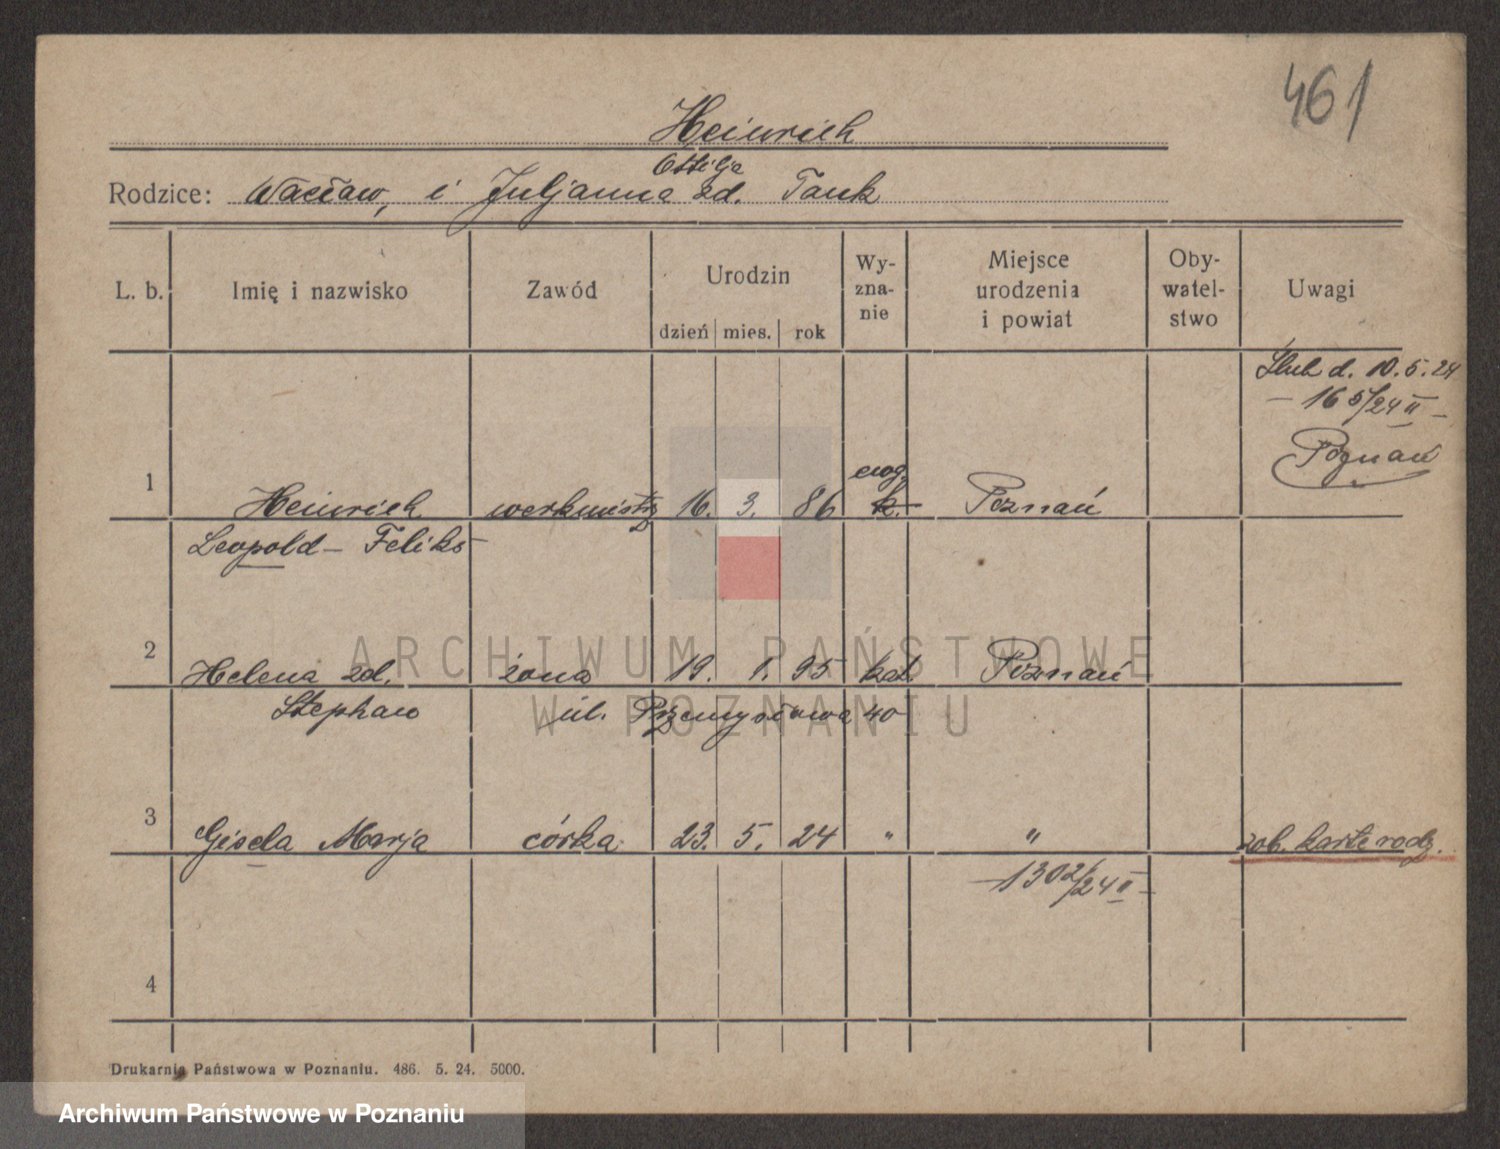 461
Heinrich
Ottilja
Rodzice: Wacław, i Juljanna zd. Tauk
L. b.
Imię i nazwisko
Zawód
Urodzin
dzień mies. rok
Wy-
zna-
nie
Miejsce
urodzenia
i powiat
Oby-
watel-
stwo
Uwagi
Ślub d. 10.5.24
— 165/24 II —
Poznań
ewg.
1 Heinrich werkmistrz 16. 3. 86 k. Poznań
Leopold — Feliks
2 Helena zd. żona 19. 1. 95 kat. Poznań
Stephan ul. Przemysłowa 40
3 Gisela Marja córka 23. 5. 24 " " zob. kartę rodz.
— 1302/24 II —
4
Drukarnia Państwowa w Poznaniu. 486. 5. 24. 5000.
ARCHIWUM PAŃSTWOWE
W POZNANIU
Archiwum Państwowe w Poznaniu